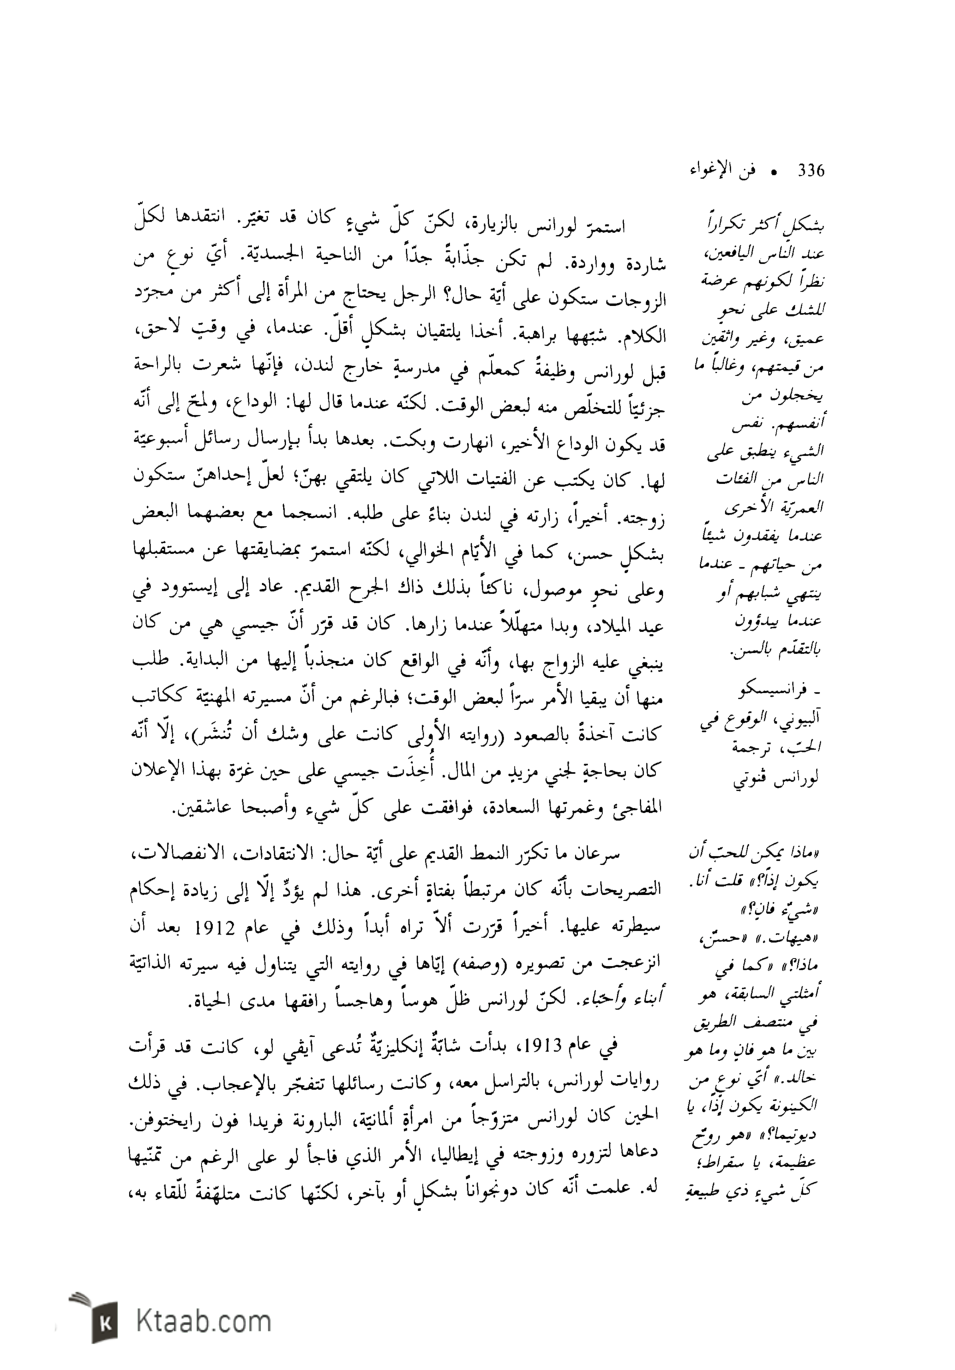 336 • فن الإغواء
استمرّ لورانس بالزيارة، لكنّ كلّ شيءٍ كان قد تغيّر. انتقدها لكلّ
شاردة وواردة. لم تكن جذّابةً جدّاً من الناحية الجسديّة. أيّ نوعٍ من
الزوجات ستكون على أيّة حال؟ الرجل يحتاج من المرأة إلى أكثر من مجرّد
الكلام. شبّهها براهبة. أخذا يلتقيان بشكلٍ أقلّ. عندما، في وقتٍ لاحق،
قبل لورانس وظيفةً كمعلّم في مدرسةٍ خارج لندن، فإنّها شعرت بالراحة
جزئيّاً للتخلّص منه لبعض الوقت. لكنّه عندما قال لها: الوداع، ولمحّ إلى أنّه
قد يكون الوداع الأخير، انهارت وبكت. بعدها بدأ بإرسال رسائل أسبوعيّة
لها. كان يكتب عن الفتيات اللاتي كان يلتقي بهنّ؛ لعلّ إحداهنّ ستكون
زوجته. أخيراً، زارته في لندن بناءً على طلبه. انسجما مع بعضهما البعض
بشكلٍ حسن، كما في الأيّام الخوالي، لكنّه استمرّ بمضايقتها عن مستقبلها
وعلى نحوٍ موصول، ناكئاً بذلك ذاك الجرح القديم. عاد إلى إيستوود في
عيد الميلاد، وبدا متهلّلاً عندما زارها. كان قد قرّر أنّ جيسي هي من كان
ينبغي عليه الزواج بها، وأنّه في الواقع كان منجذباً إليها من البداية. طلب
منها أن يبقيا الأمر سرّاً لبعض الوقت؛ فبالرغم من أنّ مسيرته المهنيّة ككاتب
كانت آخذةً بالصعود (روايته الأولى كانت على وشك أن تُنشَر)، إلّا أنّه
كان بحاجةٍ لجني مزيدٍ من المال. أُخِذَت جيسي على حين غرّة بهذا الإعلان
المفاجئ وغمرتها السعادة، فوافقت على كلّ شيء وأصبحا عاشقين.
سرعان ما تكرّر النمط القديم على أيّة حال: الانتقادات، الانفصالات،
التصريحات بأنّه كان مرتبطاً بفتاةٍ أخرى. هذا لم يؤدِّ إلّا إلى زيادة إحكام
سيطرته عليها. أخيراً قرّرت ألاّ تراه أبداً وذلك في عام 1912 بعد أن
انزعجت من تصويره (وصفه) إيّاها في روايته التي يتناول فيه سيرته الذاتيّة
أبناء وأحبّاء. لكنّ لورانس ظلّ هوساً وهاجساً رافقها مدى الحياة.
في عام 1913، بدأت شابّةٌ إنكليزيّةٌ تُدعى آيڤي لو، كانت قد قرأت
روايات لورانس، بالتراسل معه، وكانت رسائلها تتفجّر بالإعجاب. في ذلك
الحين كان لورانس متزوّجاً من امرأةٍ ألمانيّة، البارونة فريدا فون رايختوفن.
دعاها لتزوره وزوجته في إيطاليا، الأمر الذي فاجأ لو على الرغم من تمنّيها
له. علمت أنّه كان دونجواناً بشكلٍ أو بآخر، لكنّها كانت متلهّفةً للّقاء به،
بشكلٍ أكثر تكراراً
عند الناس اليافعين،
نظراً لكونهم عرضة
للشك على نحوٍ
عميق، وغير واثقين
من قيمتهم، وغالباً ما
يخجلون من
أنفسهم. نفس
الشيء ينطبق على
الناس من الفئات
العمريّة الأخرى
عندما يفقدون شيئاً
من حياتهم ـ عندما
ينتهي شبابهم أو
عندما يبدؤون
بالتقدّم بالسن.
ـ فرانسيسكو
آلبيوني، الوقوع في
الحبّ، ترجمة
لورانس ڤنوتي
«ماذا يمكن للحبّ أن
يكون إذاً؟» قلت أنا.
«شيءٌ فانٍ؟»
«هيهات.» «حسنٌ،
ماذا؟» «كما في
أمثلتي السابقة، هو
في منتصف الطريق
بين ما هو فانٍ وما هو
خالد.» أيّ نوعٍ من
الكينونة يكون إذاً، يا
ديوتيما؟» «هو روحٌ
عظيمة، يا سقراط؛
كلّ شيءٍ ذي طبيعةٍ
K Ktaab.com